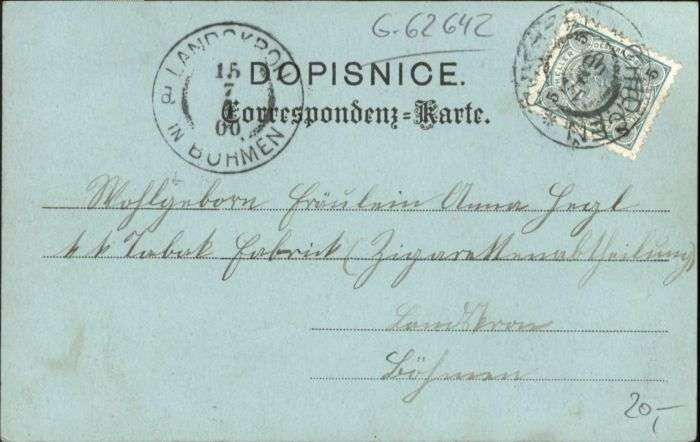 G-62642
LANDSKRON
IN BÖHMEN
15
7
00
DOPISNICE.
Correspondenz-Karte.
Wohlgeborn Fräulein Anna Hegl
k k Tabak Fabrick (Zigarettenabtheilung)
Landskron
Böhmen
20,-